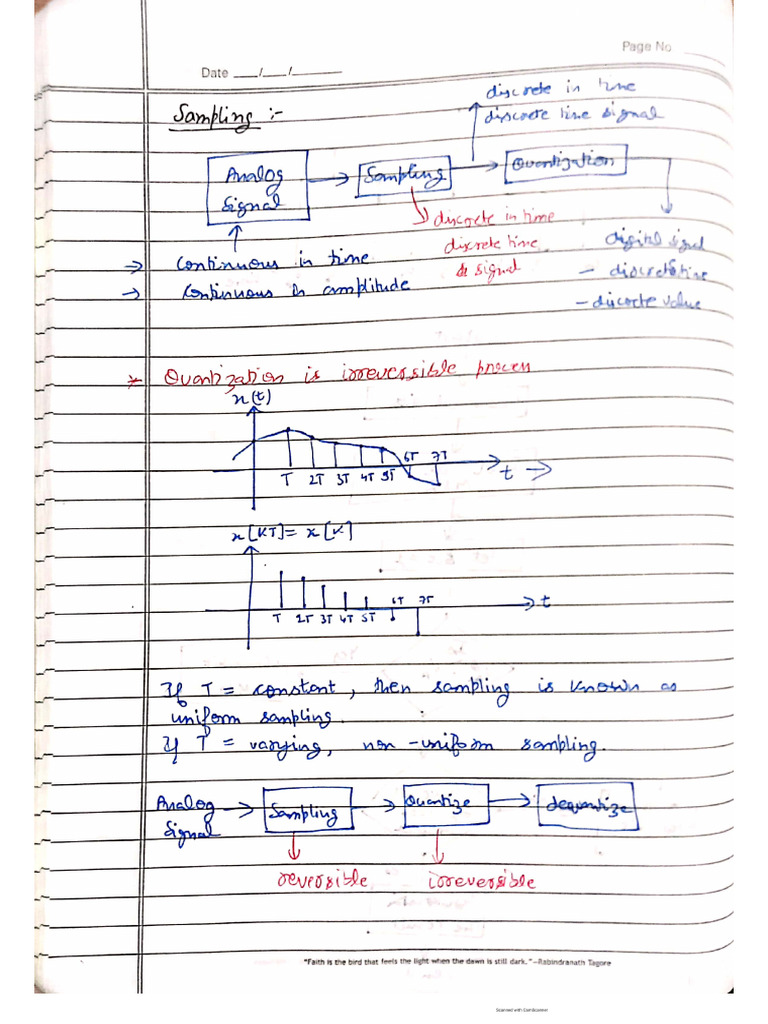 Page No
Date ___/___/______
Sampling :-
discrete in time
discrete time signal
Analog Signal
Sampling
Quantization
discrete in time
discrete time
& signal
digital signal
- discrete time
- discrete value
→ Continuous in time
→ Continuous in amplitude
* Quantization is irreversible process
x(t)
T 2T 3T 4T 5T 6T 7T
t →
x[KT] = x[K]
T 2T 3T 4T 5T 6T 7T
t
If T = constant, then sampling is known as
uniform sampling.
If T = varying, non-uniform sampling.
Analog Signal
Sampling
Quantize
dequantize
reversible
irreversible
"Faith is the bird that feels the light when the dawn is still dark."–Rabindranath Tagore
Scanned with CamScanner